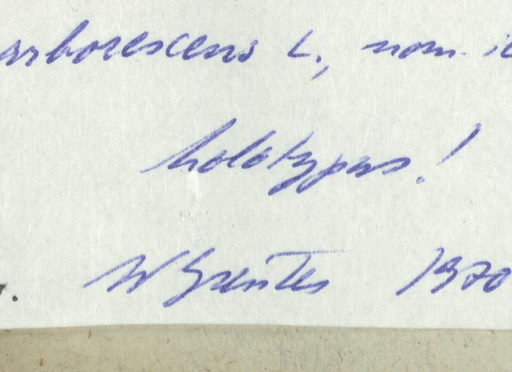 arborescens L., nom. ic
holotypus!
W Greuter 1970